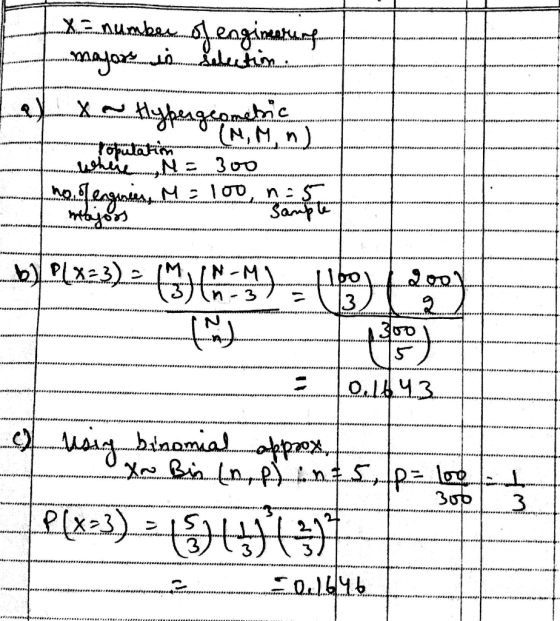 X = number of engineering
majors in selection.
a) X ~ Hypergeometric
(N, M, n)
Population
where, N = 300
no. of engineer, M = 100, n = 5
majors sample
b) P(X=3) = (M 3) (N-M n-3) / (N n) = (100 3) (200 2) / (300 5)
= 0.1643
c) Using binomial approx.
X~ Bin (n, p) : n = 5, p = 100/300 = 1/3
P(X=3) = (5 3) (1/3)^3 (2/3)^2
= = 0.1646